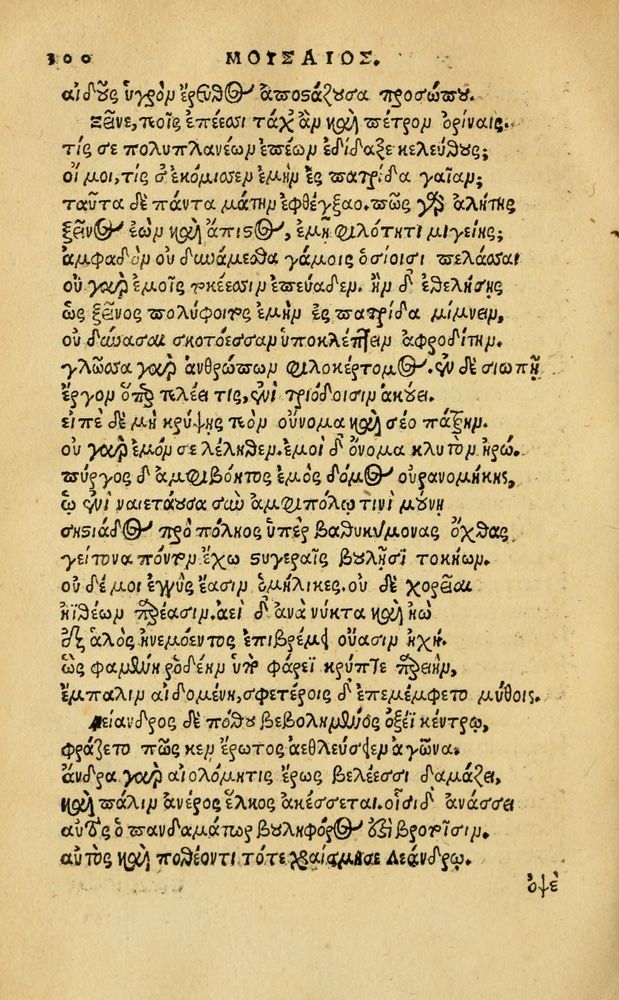 300 ΜΟΥΣΑΙΟΣ.
αἰδοῦς ὑγρὸν ἔρευθος ἀποστάζουσα προσώπου.
ξεῖνε, τεοῖς ἐπέεσσι τάχ' ἂν καὶ πέτρον ὀρίναις.
τίς σε πολυπλανέων ἐπέων ἐδίδαξε κελεύθους;
οἴ μοι, τίς σ' ἐκόμισεν ἐμὴν ἐς πατρίδα γαῖαν;
ταῦτα δὲ πάντα μάτην ἐφθέγξαο. πῶς γὰρ ἀλήτης
ξεῖνος ἐὼν καὶ ἄπιστος, ἐμῇ φιλότητι μιγείης;
ἀμφαδὸν οὐ δυνάμεσθα γάμοις ὁσίοισι πελάσσαι
οὐ γὰρ ἐμοῖς τοκέεσσιν ἐπεύαδεν. ἢν δ' ἐθελήσῃς
ὡς ξεῖνος πολύφοιτος ἐμὴν ἐς πατρίδα μίμνειν,
οὐ δύνασαι σκοτόεσσαν ὑποκλέπτειν ἀφροδίτην.
γλῶσσα γὰρ ἀνθρώπων φιλοκέρτομος. ἐν δὲ σιωπῇ
ἔργον ὅπερ τελέει τις, ἐνὶ τριόδοισιν ἀκούει.
εἰπὲ δὲ μὴ κρύψῃς τεὸν οὔνομα καὶ σέο πάτρην.
οὐ γὰρ ἐμόν σε λέληθεν. ἐμοὶ δ' ὄνομα κλυτὸν ἡρώ.
πύργος δ' ἀμφιβόητος ἐμὸς δόμος οὐρανομήκης,
ᾧ ἔνι ναιετάουσα σὺν ἀμφιπόλῳ τινὶ μούνη
σηστιάδος πρὸ πόληος ὑπὲρ βαθυκύμονας ὄχθας
γείτονα πόντον ἔχω στυγεραῖς βουλῇσι τοκήων.
οὐδέ μοι ἐγγὺς ἔασιν ὁμήλικες. οὐ δὲ χορεῖαι
ἠϊθέων παρέασιν. ἀεὶ δ' ἀνὰ νύκτα καὶ ἠὼ
ἐξ ἁλὸς ἠνεμόεντος ἐπιβρέμει οὔασιν ἠχή.
ὣς φαμένη ῥοδέην ὑπὸ φάρεϊ κρύπτε παρειὴν,
ἔμπαλιν αἰδομένη, σφετέροις δ' ἐπεμέμφετο μύθοις.
λείανδρος δὲ πόθου βεβολημένος ὀξέϊ κέντρῳ,
φράζετο πῶς κεν ἔρωτος ἀεθλεύσειεν ἀγῶνα.
ἄνδρα γὰρ αἰολόμητις ἔρως βελέεσσι δαμάζει,
καὶ πάλιν ἀνέρος ἕλκος ἀκέσσεται. οἷσι δ' ἀνάσσει
αὐτὸς ὁ πανδαμάτωρ βουληφόρος ἐστὶ βροτοῖσιν.
αὐτὸς καὶ ποθέοντι τότε χραίσμησε λεάνδρῳ.
ὀψὲ